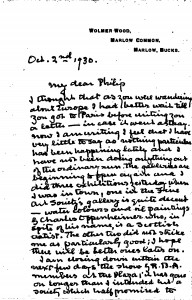 WOLMER WOOD,
MARLOW COMMON,
MARLOW, BUCKS.
Oct. 2nd 1930.
My dear Philip
I thought that as you were wandering
about Europe I had better wait till
you got to Paris before writing you
a letter — in case it went astray.
Now I am writing I feel that I have
very little to say as nothing particular
has been happening lately and I
have not been doing anything out
of the ordinary run. The galleries are
beginning to open again and I
did three exhibitions yesterday when
I was in town; one in the Fine
Art Society's gallery is quite decent
— water colours and oil paintings
of Charles Oppenheimer who, in
spite of his name, is a Scottish
artist. The other two did not strike
one as particularly good; I hope
there will be better ones later on.
I am closing down within the
next few days the show of R.B.A.
members at the
on longer than I intended but a
society which half promised to